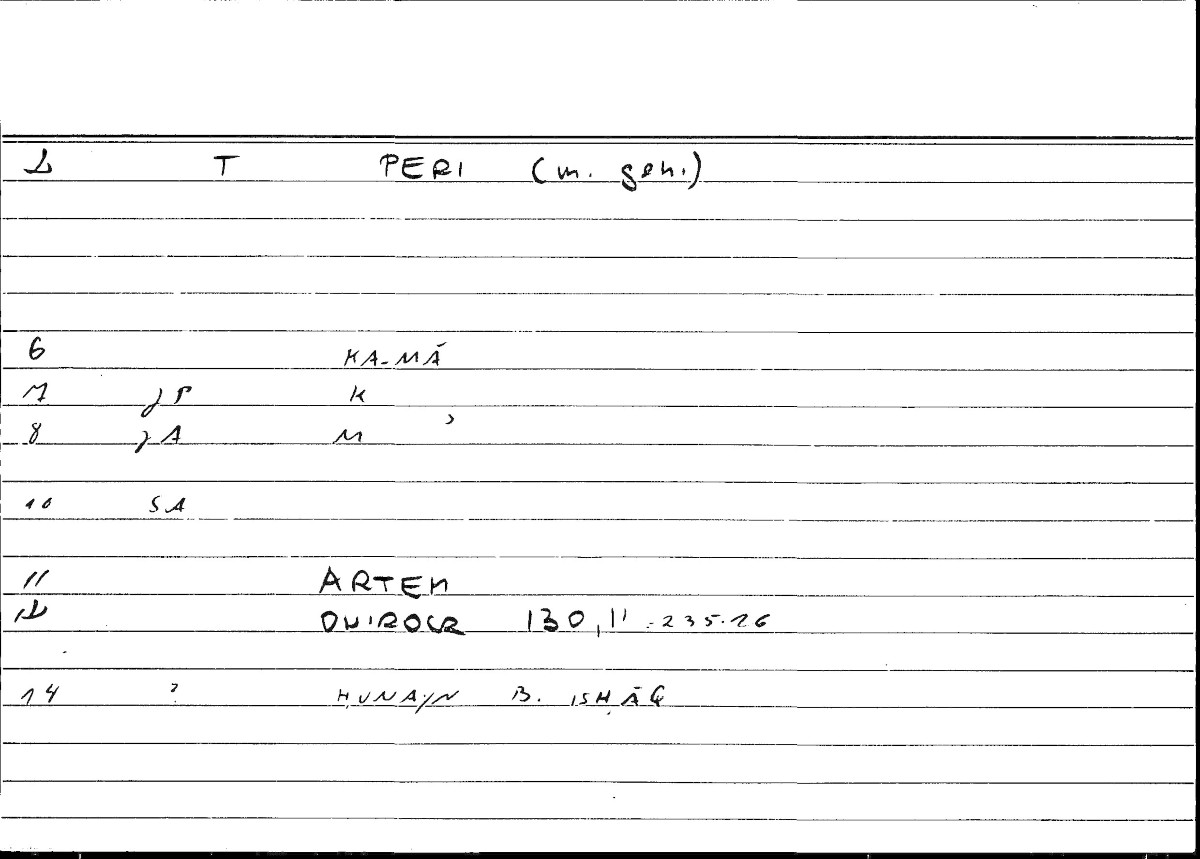 1 T PERI (m. gen.)
6 KA-MĀ
7 jP K
8 jA M
10 SA
11 ARTEM
12 ONIROCR 130,11 - 235.16
14 ? ḤUNAYN B. ISḤĀQ